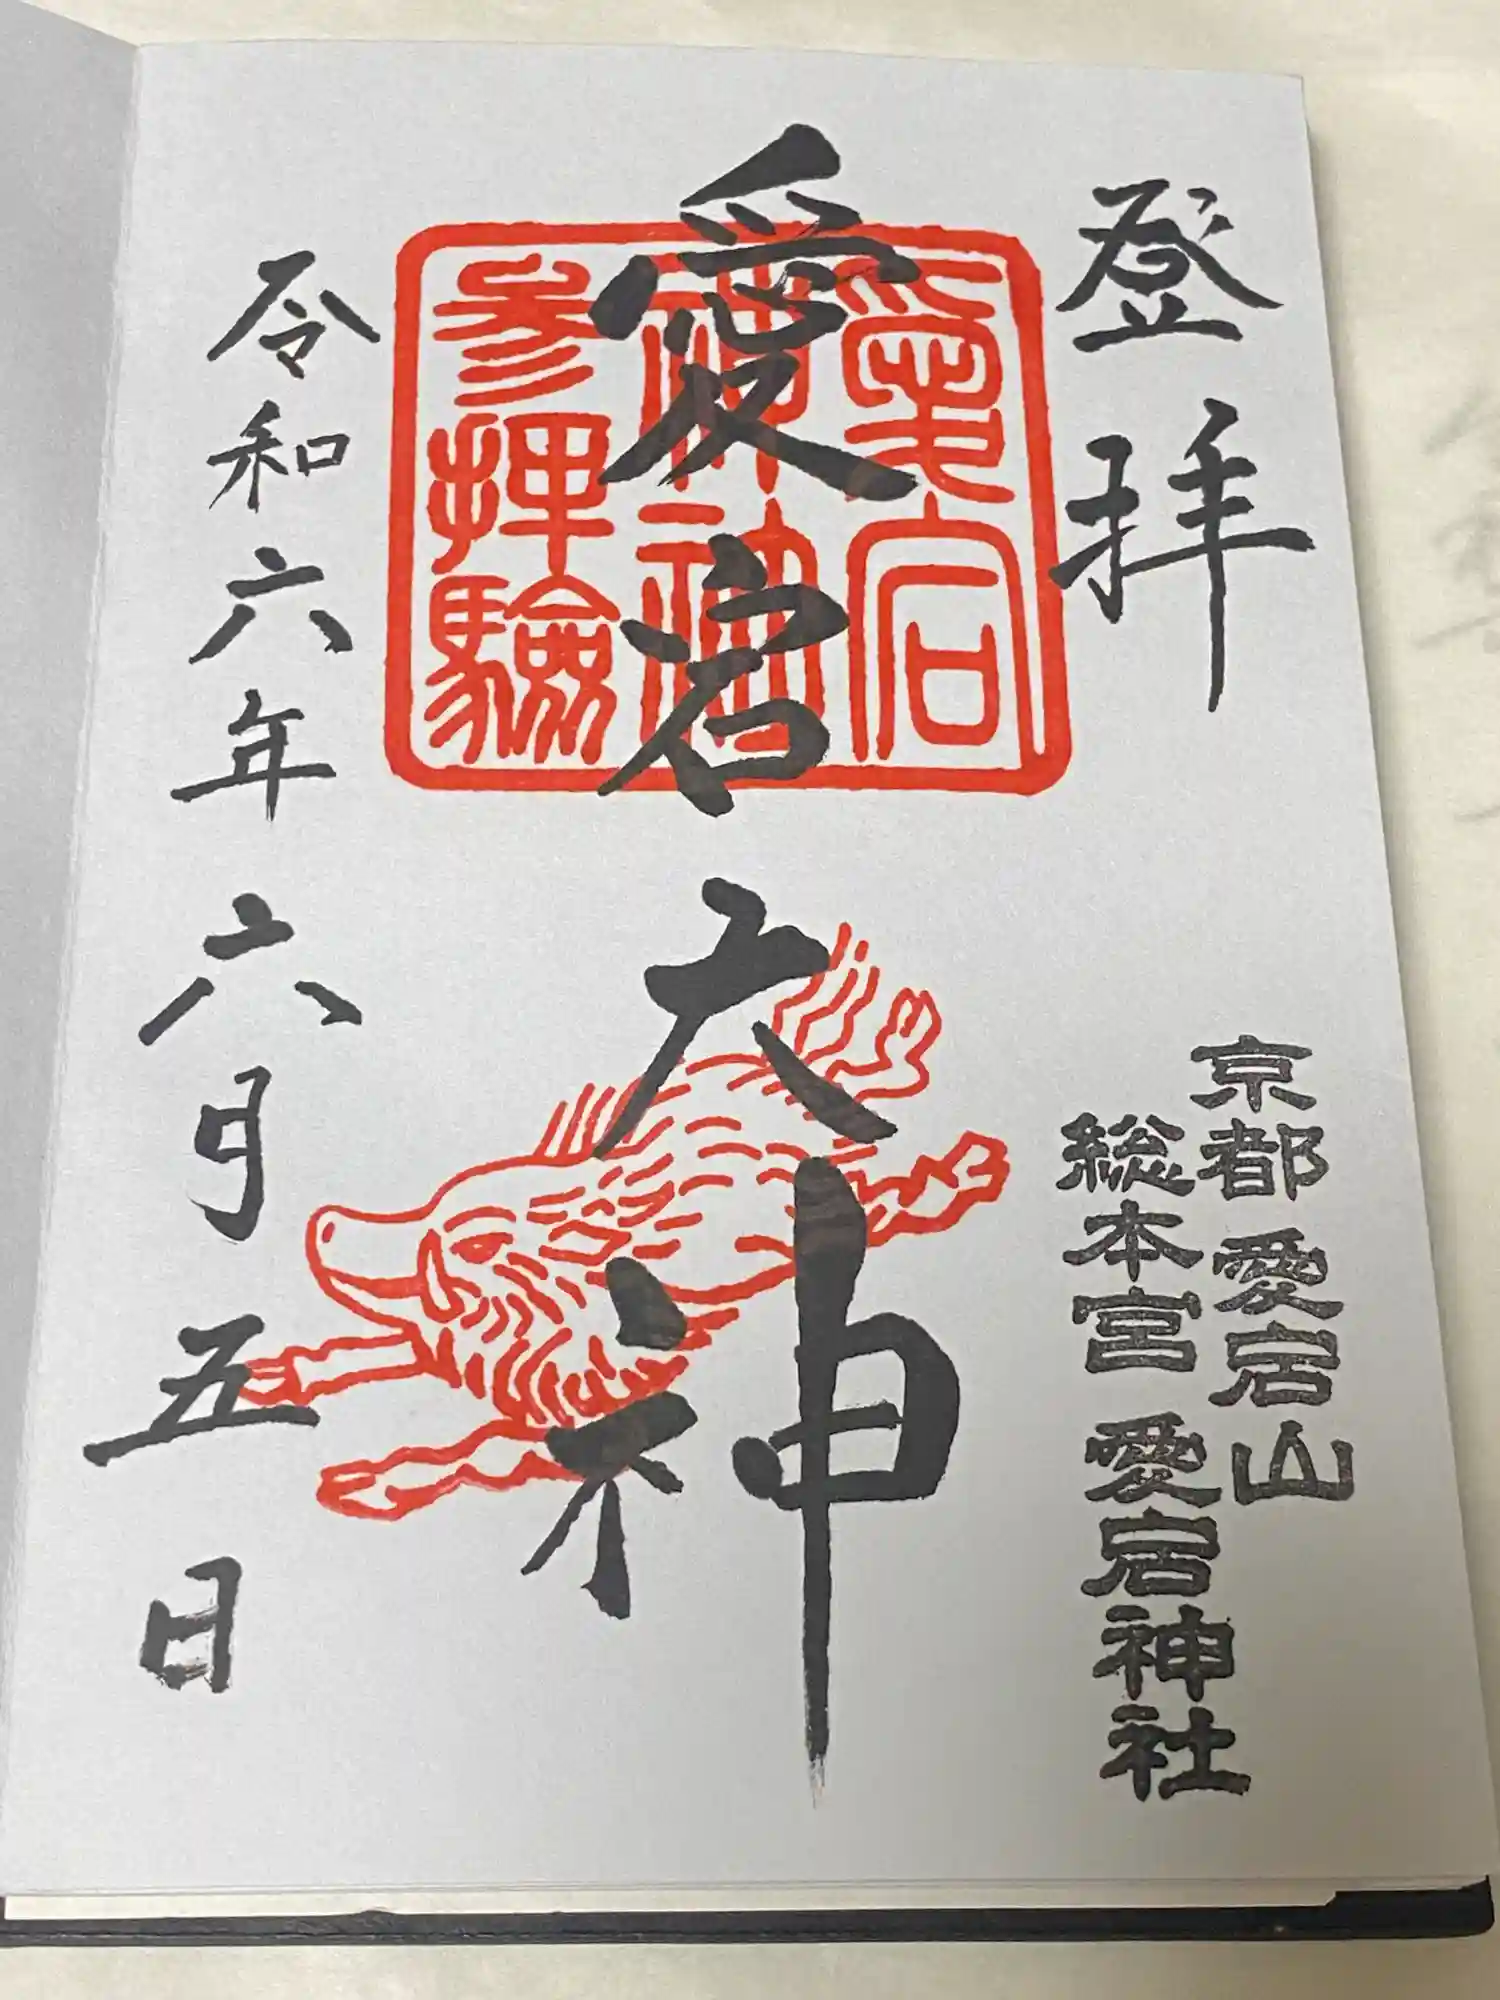 登拝
京都愛宕山
総本宮愛宕神社
愛宕大神
愛宕
神社
参拝験
令和六年六月五日